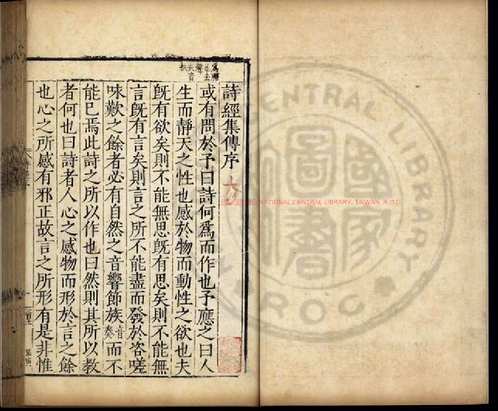 詩經集傳序
或有問於予曰詩何爲而作也予應之曰人
生而靜天之性也感於物而動性之欲也夫
旣有欲矣則不能無思旣有思矣則不能無
言旣有言矣則言之所不能盡而發於咨嗟
咏歎之餘者必有自然之音響節族音奏而不
能已焉此詩之所以作也曰然則其所以敎
者何也曰詩者人心之感物而形於言之餘
也心之所感有邪正故言之所形有是非惟
CENTRAL LIBRARY
NATIONAL CENTRAL LIBRARY, TAIWAN, R.O.C